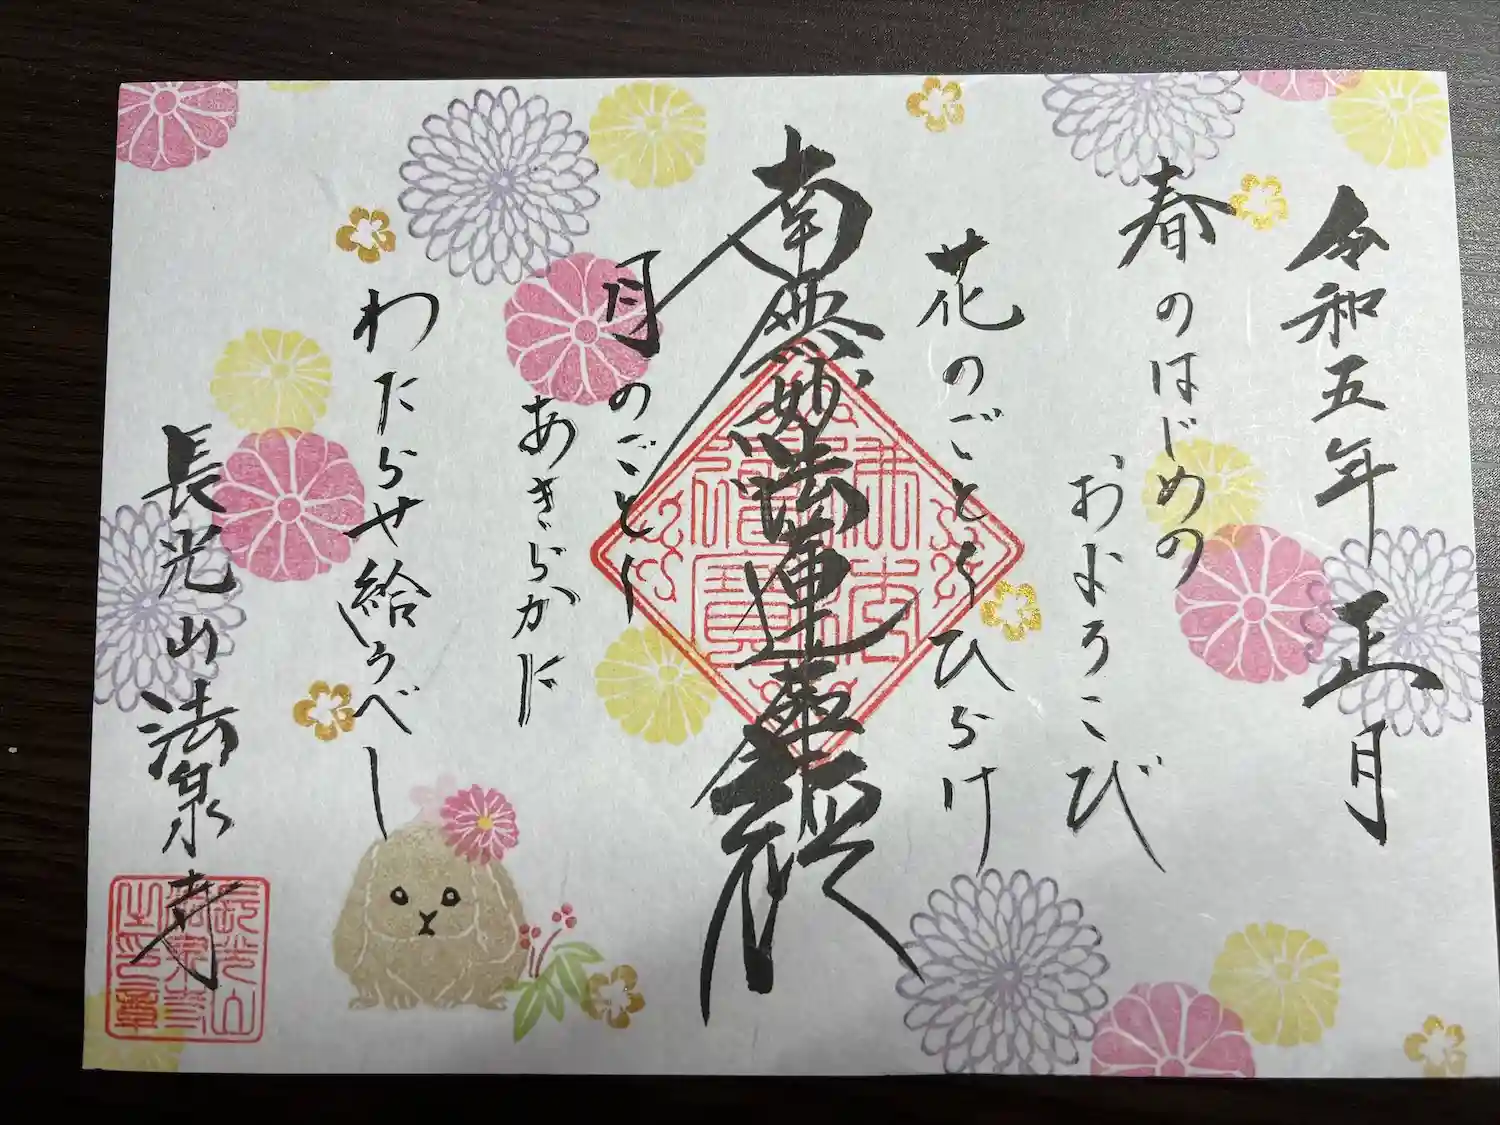 令和五年正月
春のはじめの
およろこび
花のごとくひらけ
南無妙法蓮華経
月のごとく
あきらかに
わたらせ給うべし
長光山法泉寺